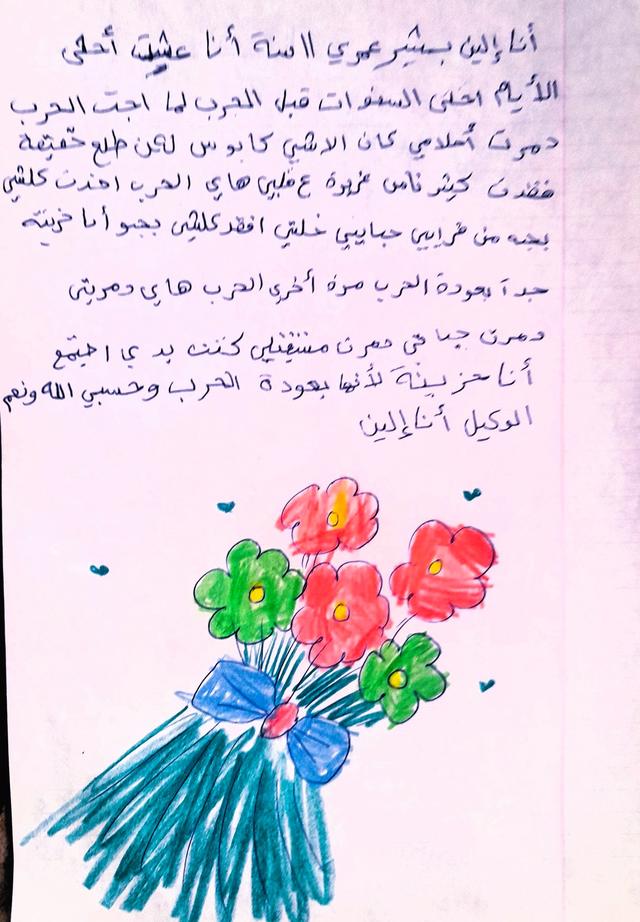 أنا إلين بشير عمري 11 سنة أنا عشت أحلى
الأيام احلى السنوات قبل الحرب لما اجت الحرب
دمرت أحلامي كان الاشي كابوس لكن طلع حقيقة
فقدت كيثر ناس عزيزة ع قلبي هاي الحرب اخذت كلشي
بحبه من قرايبي حبايبي خلتني افقد كلشي بحبو أنا حزينة
جداً بعودة الحرب مرة أخرى الحرب هاي دمرتني
دمرت حياتي دمرت مستقبلي كنت بدي
أنا حزينة لأنها بعودة الحرب وحسبي الله ونعم
الوكيل أنا إلين